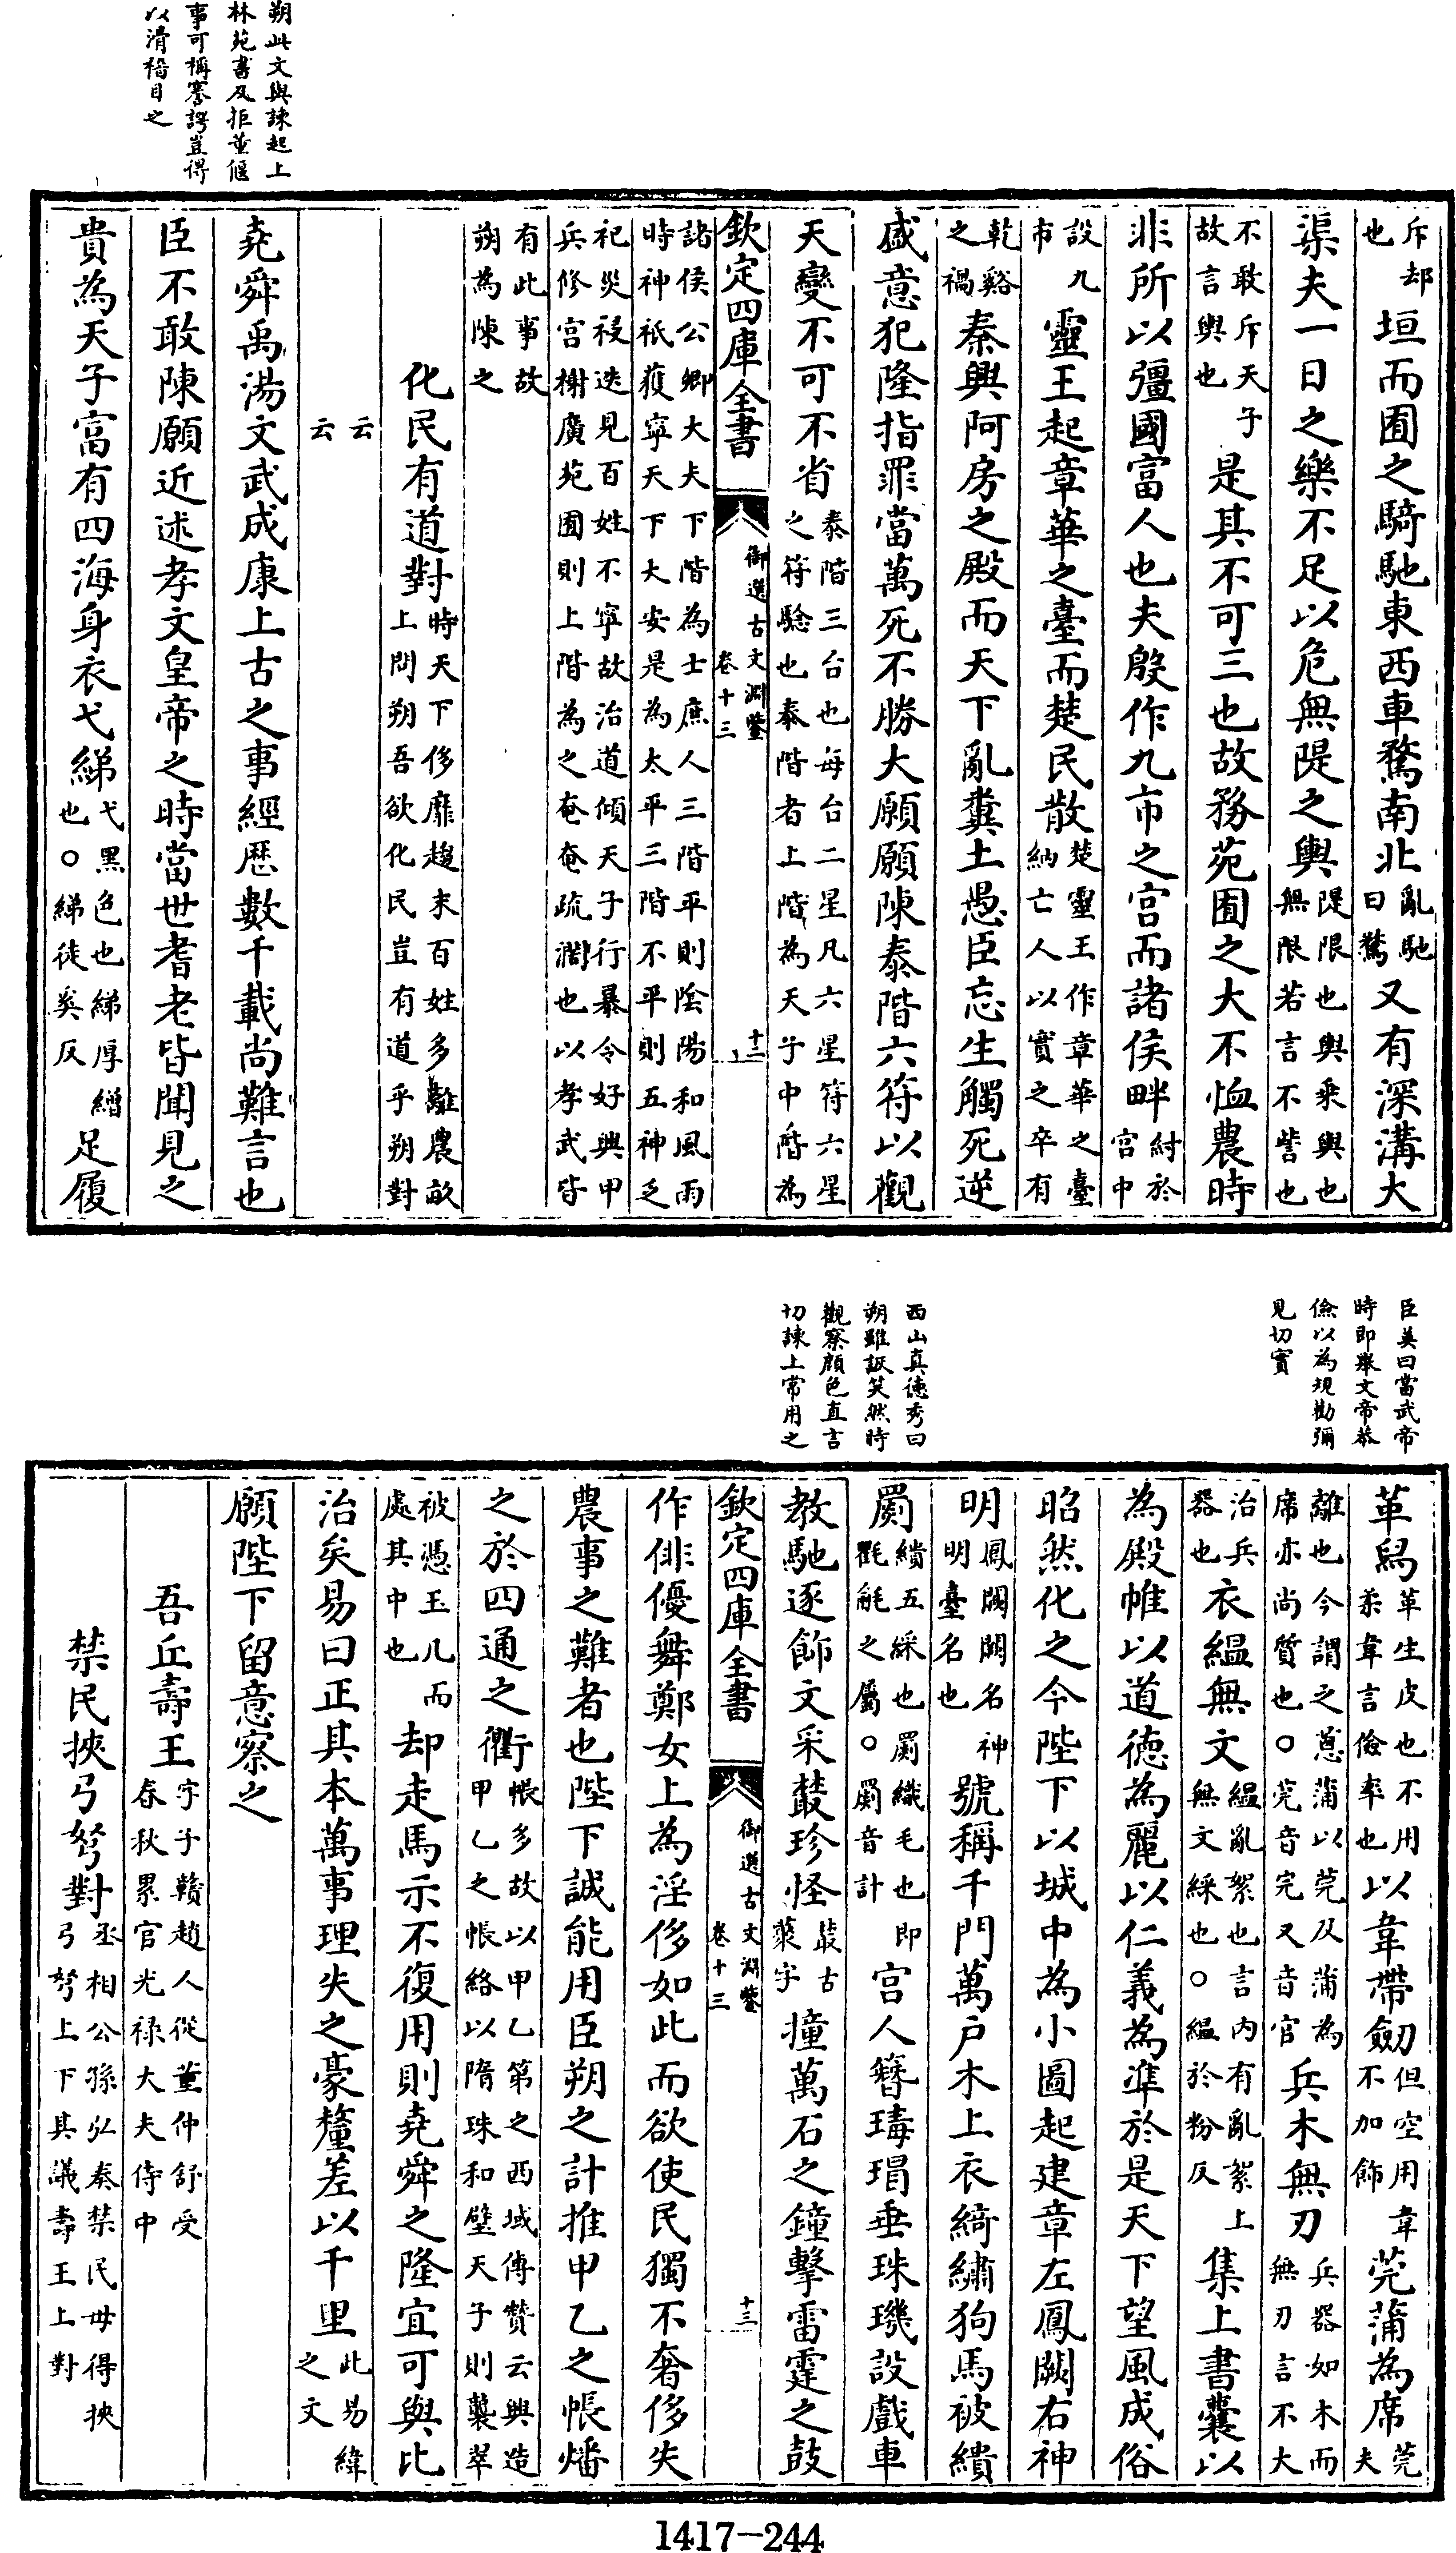 朔此文與諫起上
林苑書及拒董偃
事可稱謇諤豈得
以滑稽目之
斥却也垣而囿之騎馳東西車騖南北亂馳曰騖又有深溝大
渠夫一日之樂不足以危無隄之輿隄限也輿乘輿也無限若言不訾也
不敢斥天子故言輿也是其不可三也故務苑囿之大不恤農時
非所以彊國富人也夫殷作九市之宫而諸侯畔紂於宫中
設九市靈王起章華之臺而楚民散楚靈王作章華之臺納亡人以實之卒有
乾谿之禍秦興阿房之殿而天下亂糞土愚臣忘生觸死逆
盛意犯隆指罪當萬死不勝大願願陳泰階六符以觀
天變不可不省泰階三台也每台二星凡六星符六星之符騐也泰階者上階為天子中階為
欽定四庫全書 御選古文淵鑒 卷十三 十二
諸侯公卿大夫下階為士庶人三階平則陰陽和風雨時神祇獲寧天下大安是為太平三階不平則五神乏
祀災祲迭見百姓不寧故治道傾天子行暴令好興甲兵修宫榭廣苑囿則上階為之奄奄疏濶也以孝武皆
有此事故朔為陳之
化民有道對時天下侈靡趨末百姓多離農畝上問朔吾欲化民豈有道乎朔對
云云
堯舜禹湯文武成康上古之事經歷數千載尚難言也
臣不敢陳願近述孝文皇帝之時當世耆老皆聞見之
貴為天子富有四海身衣弋綈弋黑色也綈厚繒也〇綈徒奚反足履
臣英曰當武帝
時即舉文帝恭
儉以為規勸彌
見切實
西山真德秀曰
朔雖詼笑然時
觀察顔色直言
切諫上常用之
革舄革生皮也不用柔韋言儉率也以韋帶劒但空用韋不加飾莞蒲為席莞夫
離也今謂之蔥蒲以莞及蒲為席亦尚質也〇莞音完又音官兵木無刃兵器如木而無刃言不大
治兵器也衣緼無文緼亂絮也言内有亂絮上無文綵也〇緼於粉反集上書囊以
為殿帷以道德為麗以仁義為凖於是天下望風成俗
昭然化之今陛下以城中為小圖起建章左鳳闕右神
明鳳闕闕名神明臺名也號稱千門萬戶木土衣綺繡狗馬被繢
罽繢五綵也罽織毛也即氍毹之屬〇罽音計宫人簪瑇瑁垂珠璣設戲車
教馳逐飾文采䕺珍怪䕺古叢字撞萬石之鐘擊雷霆之鼓
欽定四庫全書 御選古文淵鑒 卷十三 十三
作俳優舞鄭女上為淫侈如此而欲使民獨不奢侈失
農事之難者也陛下誠能用臣朔之計推甲乙之帳燔
之於四通之衢帳多故以甲乙第之西域傳贊云興造甲乙之帳絡以隋珠和璧天子則襲翠
被憑玉几而處其中也却走馬示不復用則堯舜之隆宜可與比
治矣易曰正其本萬事理失之豪釐差以千里此易緯之文
願陛下留意察之
吾丘壽王字子贛趙人從董仲舒受春秋累官光禄大夫侍中
禁民挾弓弩對丞相公孫弘奏禁民毋得挾弓弩上下其議壽王上對
1417-244